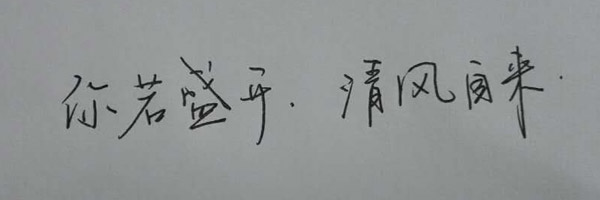 你若盛开.清风自来.